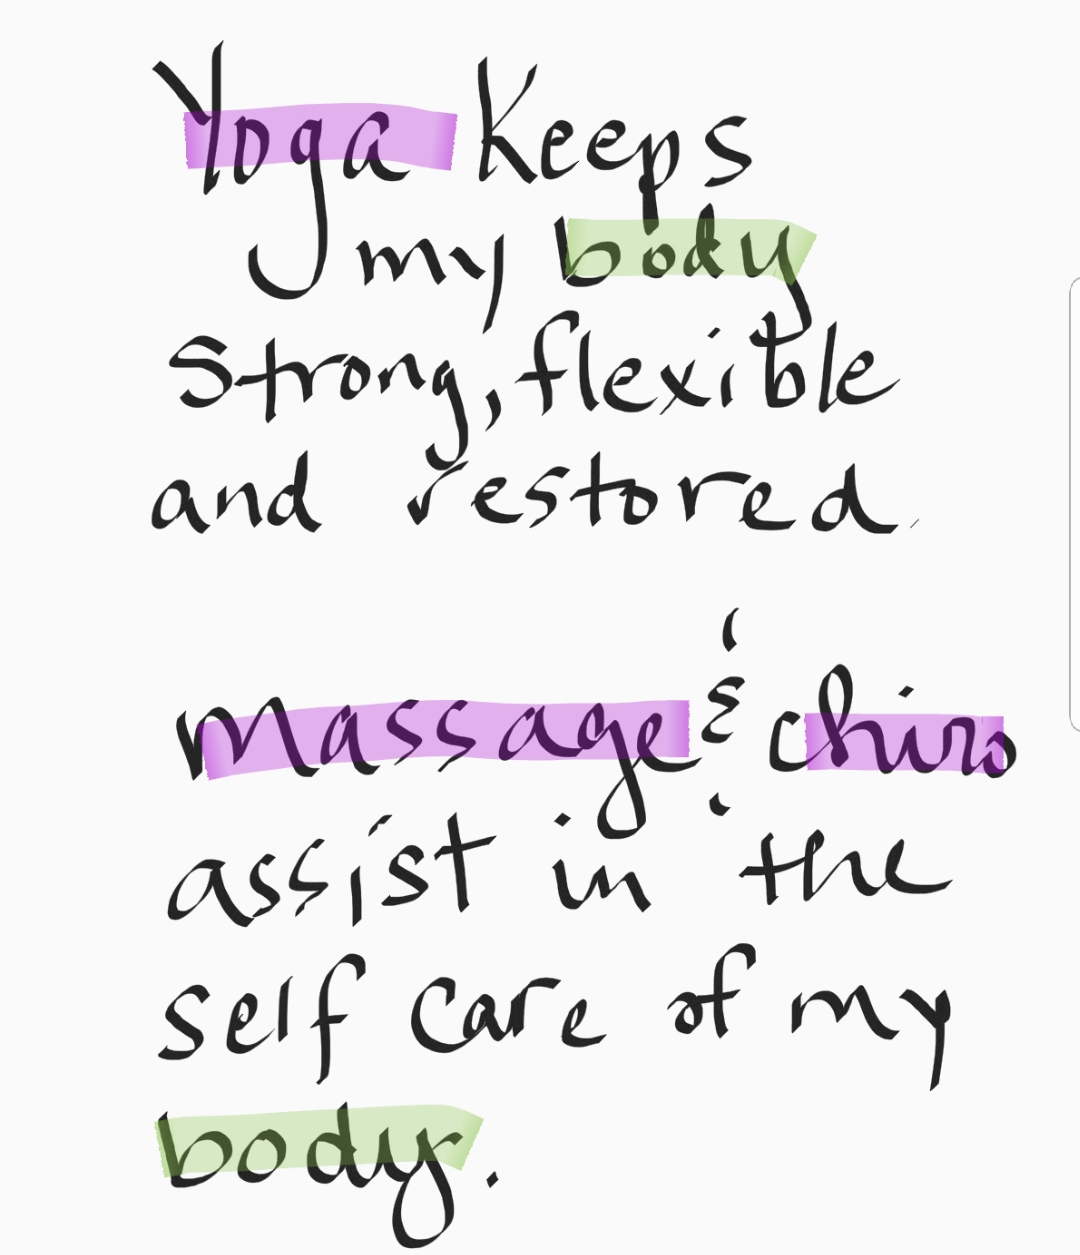 Yoga Keeps
my body
Strong, flexible
and restored.
Massage & chiro
assist in the
self care of my
body.